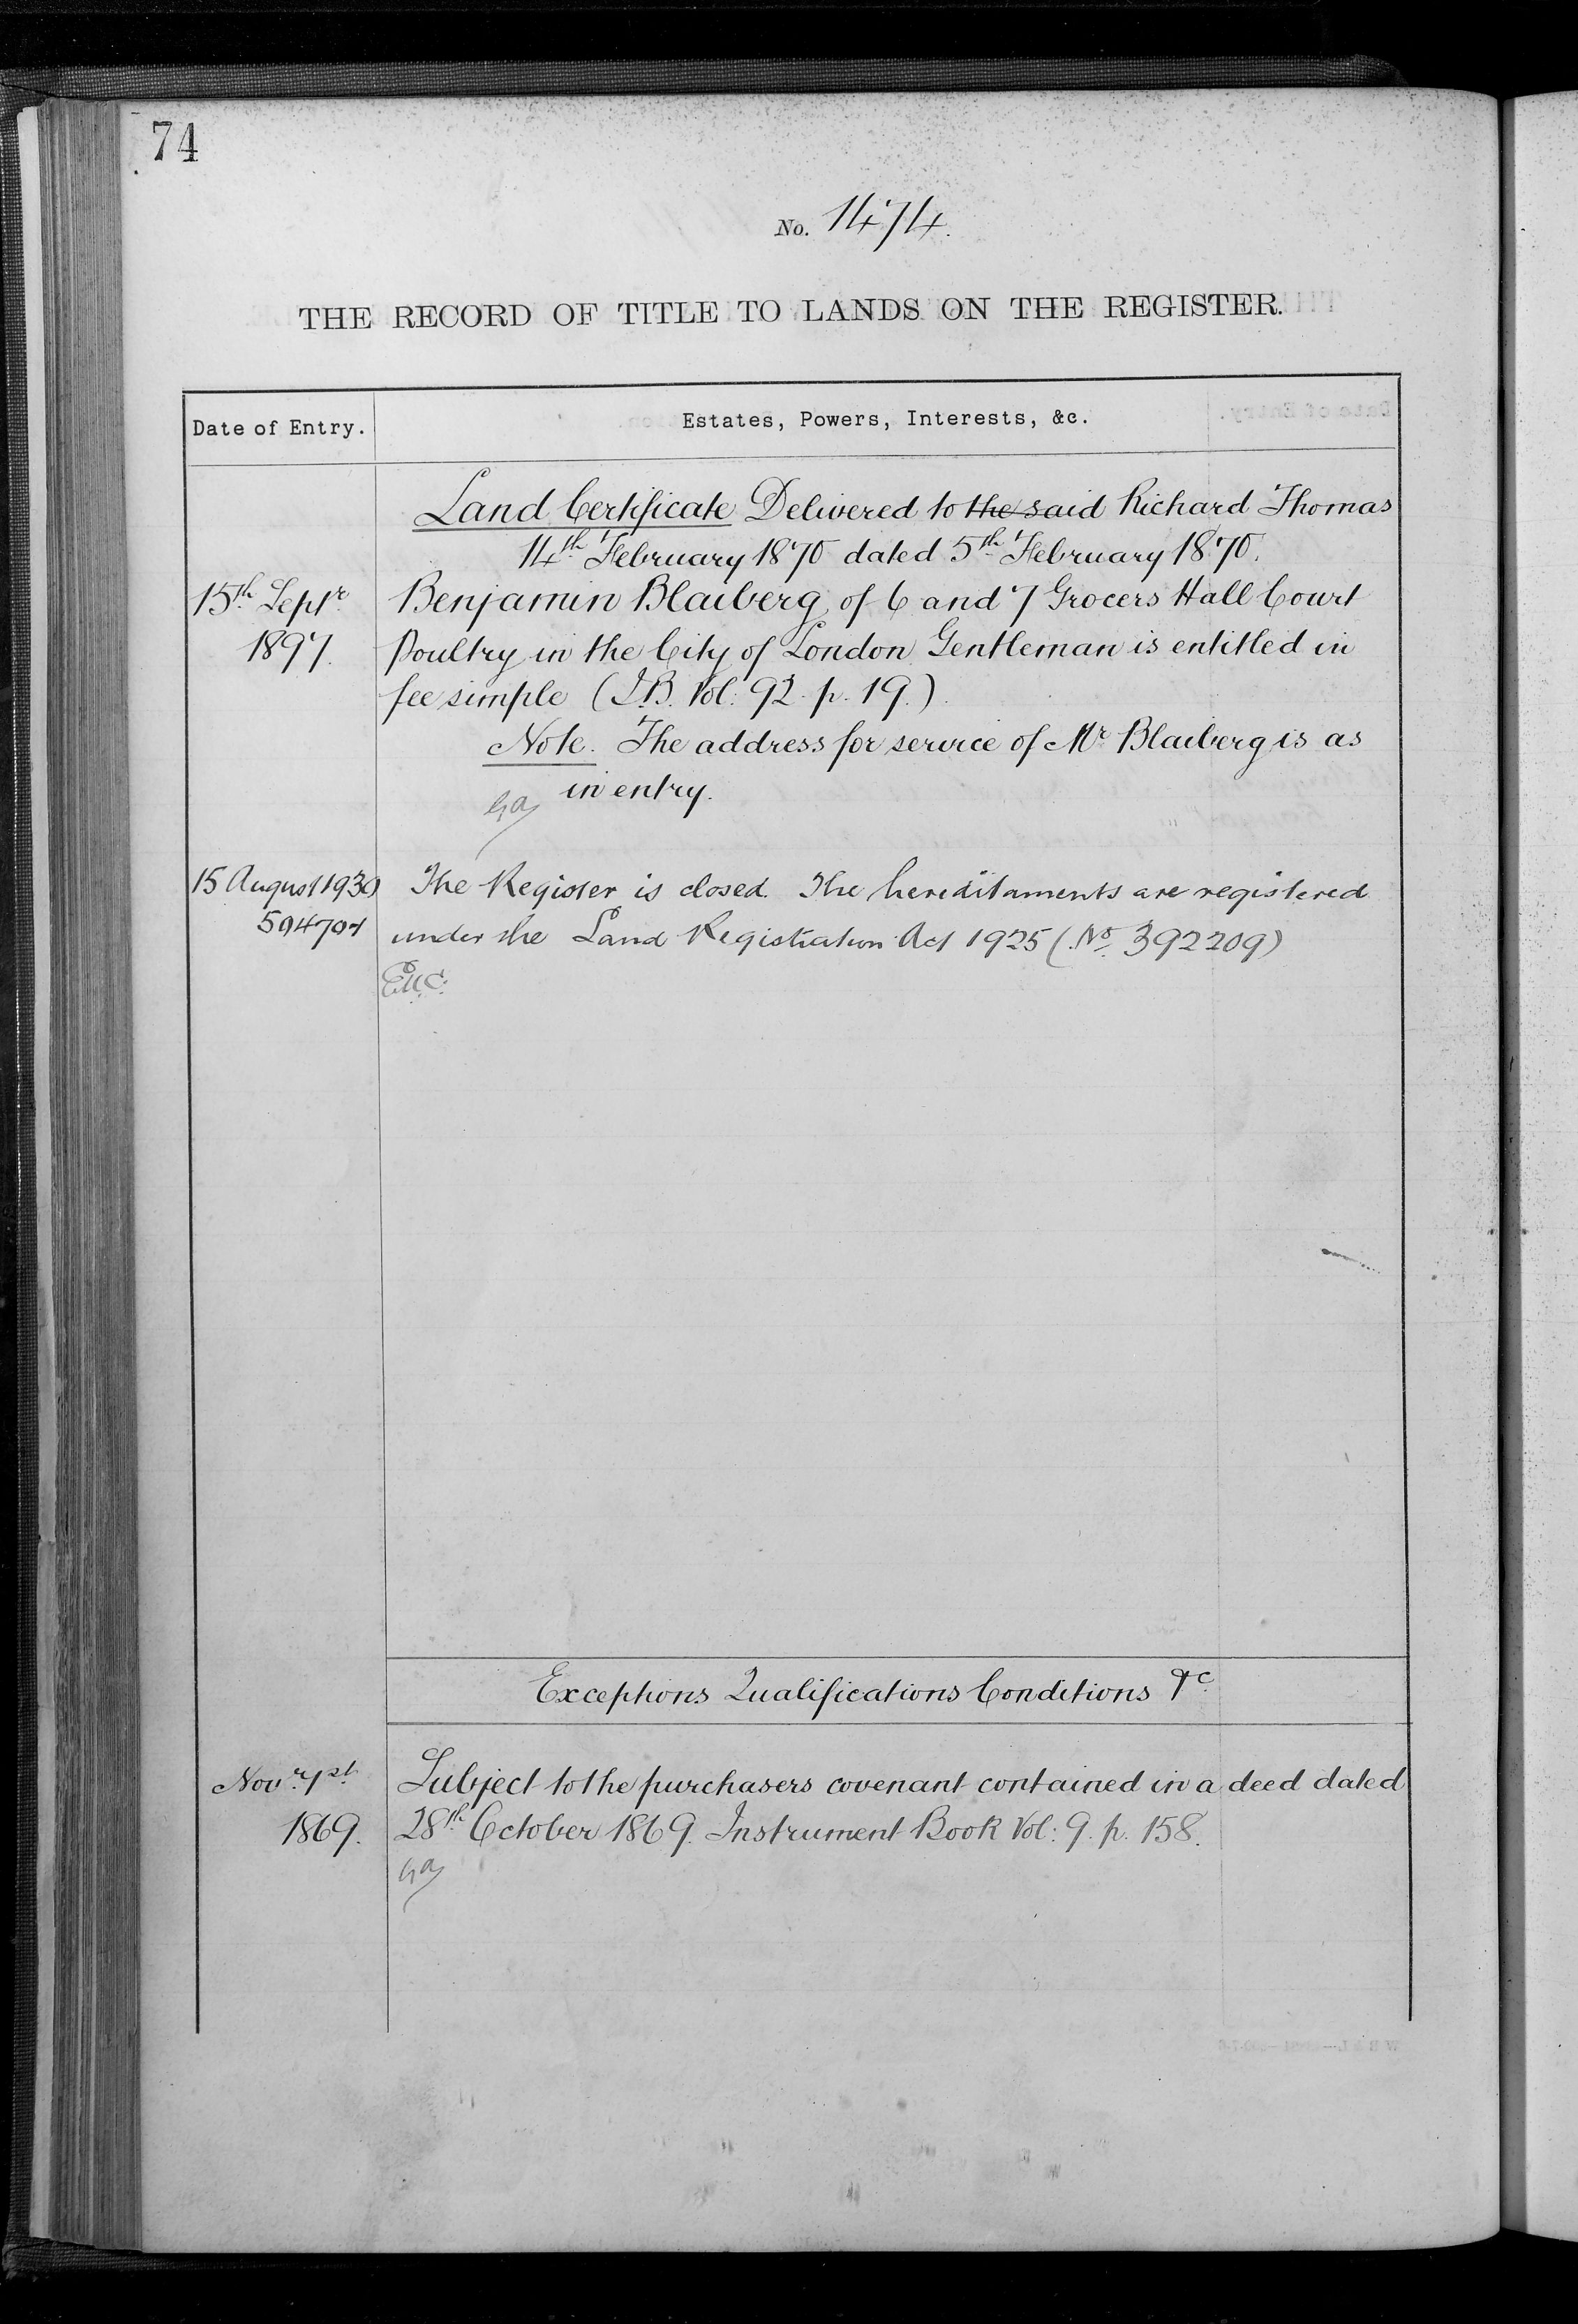 74
No. 1474.
THE RECORD OF TITLE TO LANDS ON THE REGISTER.
Date of Entry.
Estates, Powers, Interests, &c.
Land Certificate Delivered to the said Richard Thomas
14th February 1870 dated 5th February 1870.
15th Septr Benjamin Blaiberg of 6 and 7 Grocers Hall Court
1897. Poultry in the City of London Gentleman is entitled in
fee simple (I.B. Vol: 92. p. 19.)
Note. The address for service of Mr Blaiberg is as
in entry.
15 August 1930 The Register is closed. The hereditaments are registered
under the Land Registration Act 1925 (No. 392209)
Exceptions Qualifications Conditions &c
Novr 1st Subject to the purchasers covenant contained in a deed dated
1869. 28th October 1869. Instrument Book Vol: 9. p. 158.